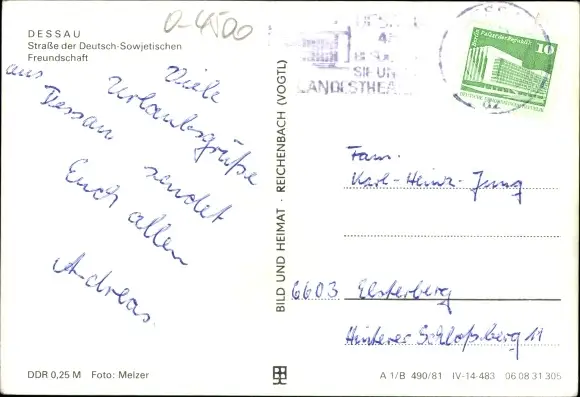 DESSAU
Straße der Deutsch-Sowjetischen
Freundschaft
0-4500
Viele
Urlaubsgrüße
aus Dessau sendet
Euch allen
Andreas.
BILD UND HEIMAT · REICHENBACH (VOGTL)
SIE UN
LANDESTHEA
Berlin Palast der Republik
10
Fam.
Karl-Heinz Jung
6603 Elsterberg
Hinterer Schloßberg 11
DDR 0,25 M Foto: Melzer
A 1/B 490/81 IV-14-483 06 08 31 305